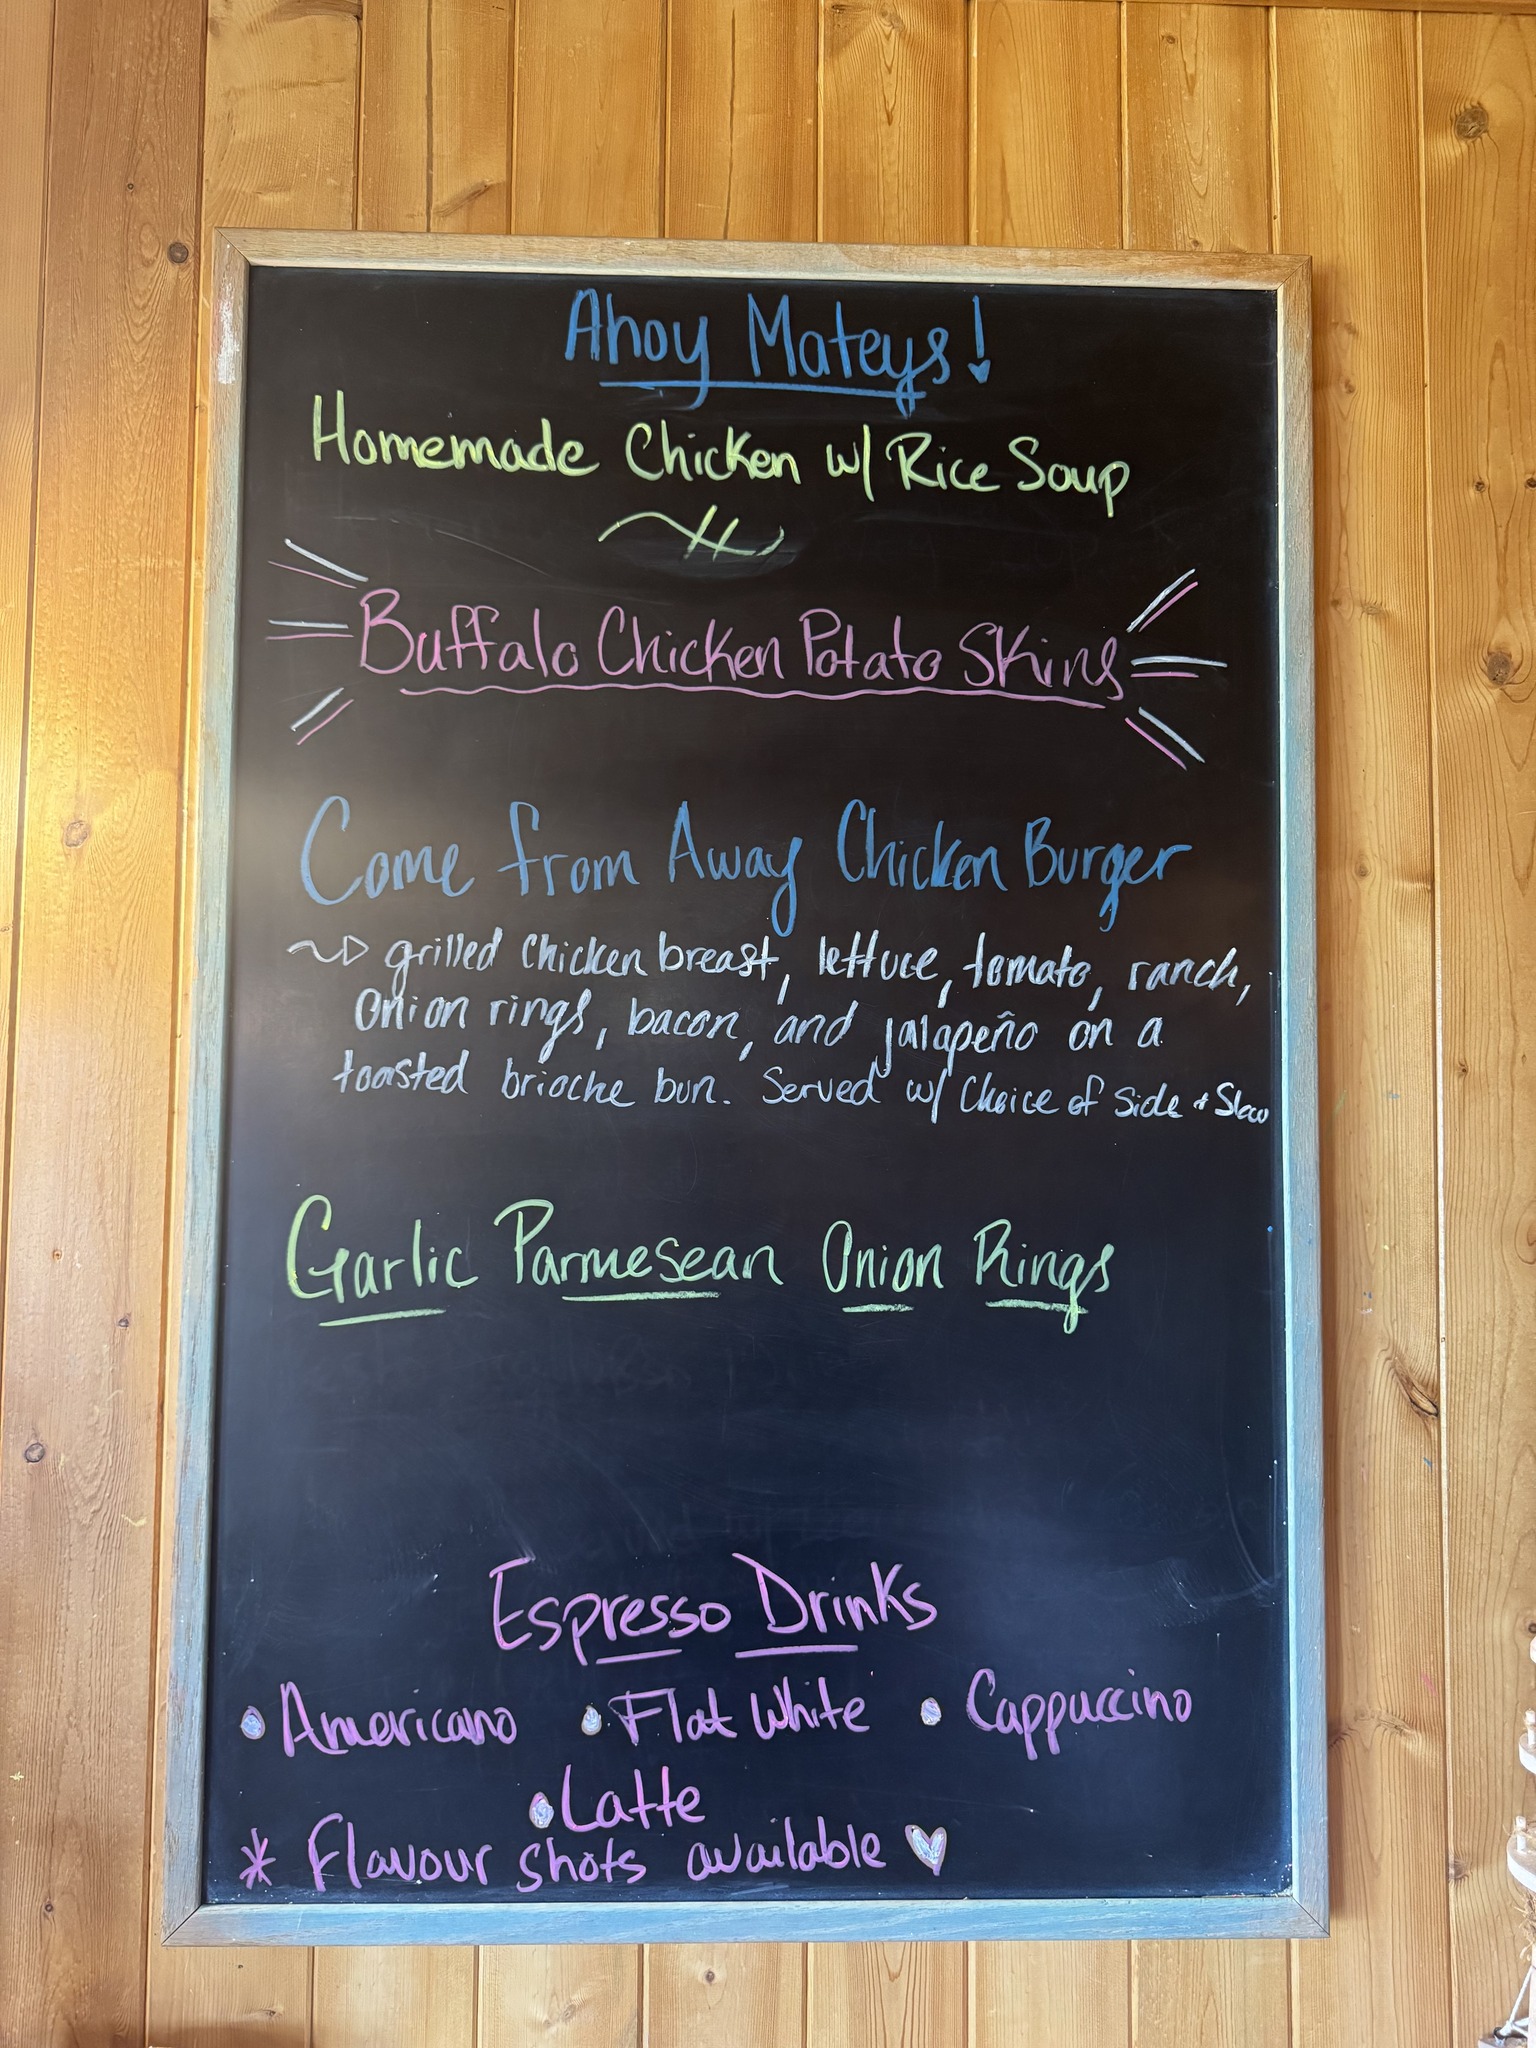 Ahoy Mateys!
Homemade Chicken w/ Rice Soup
Buffalo Chicken Potato Skins
Come from Away Chicken Burger
grilled chicken breast, lettuce, tomato, ranch,
onion rings, bacon, and jalapeño on a
toasted brioche bun. Served w/ choice of side + Slaw
Garlic Parmesean Onion Rings
Espresso Drinks
• Americano • Flat White • Cappuccino
• Latte
* Flavour shots available